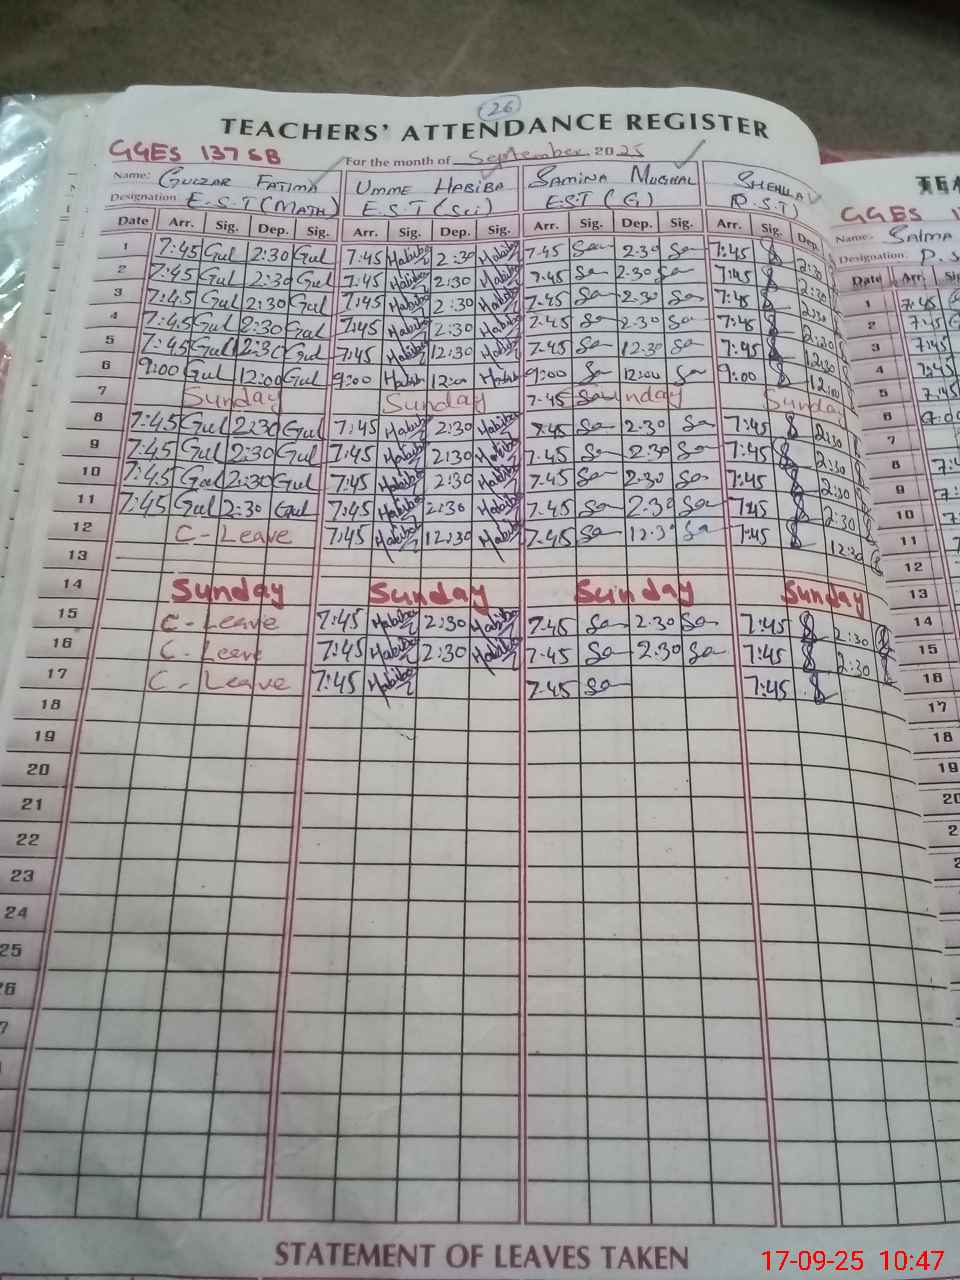 26
TEACHERS' ATTENDANCE REGISTER
GGES 137 SB For the month of September 2025
Name: GULZAR FATIMA UMME HABIBA SAMINA MUGHAL SHEHLA
Designation E.S.T (MATH) E.S.T (Sci) E.S.T (G) P.S.T)
Date Arr. Sig. Dep. Sig. Arr. Sig. Dep. Sig. Arr. Sig. Dep. Sig. Arr. Sig. Dep.
1 7:45 Gul 2:30 Gul 7:45 Habiba 2:30 Habiba 7-45 Sa 2.30 Sa 7:45 2:30
2 7:45 Gul 2:30 Gul 7:45 Habiba 2:30 Habiba 7.45 Sa 2.30 Sa 7:45 2:30
3 7:45 Gul 2:30 Gul 7:45 Habiba 2:30 Habiba 7-45 Sa 2.30 Sa 7:45 2:30
4 7:45 Gul 2:30 Gul 7:45 Habiba 2:30 Habiba 7-45 Sa 2.30 Sa 7:45
5 7:45 Gul 12:30 Gul 7:45 Habiba 12:30 Habiba 7-45 Sa 12.30 Sa 7:45 12:30
6 9:00 Gul 12:00 Gul 9:00 Habib 12:00 Habib 9:00 Sa 12:00 Sa 9:00 12:00
7 Sunday Sunday 7-45 Sunday Sunday
8 7:45 Gul 2:30 Gul 7:45 Habiba 2:30 Habiba 7.45 Sa 2.30 Sa 7:45 2:30
9 7:45 Gul 2:30 Gul 7:45 Habiba 2:30 Habiba 7-45 Sa 2.30 Sa 7:45 2:30
10 7:45 Gul 2:30 Gul 7:45 Habiba 2:30 Habiba 7-45 Sa 2.30 Sa 7:45 2:30
11 7:45 Gul 2:30 Gul 7:45 Habiba 2:30 Habiba 7-45 Sa 2.30 Sa 7:45 2:30
12 C-Leave 7:45 Habiba 12:30 Habiba 7-45 Sa 12.30 Sa 7:45 12:30
13
14 Sunday Sunday Sunday Sunday
15 C-Leave 7:45 Habiba 2:30 Habiba 7-45 Sa 2.30 Sa 7:45 2:30
16 C-Leave 7:45 Habiba 2:30 Habiba 7-45 Sa 2.30 Sa 7:45 2:30
17 C-Leave 7:45 Habiba 7-45 Sa 7:45
18
19
20
21
22
23
24
25
STATEMENT OF LEAVES TAKEN
GGES
Name: Salma
Designation: P.S
Date Arr. Sig
1 7:45
2 7:45
3 7:45
4 7:45
5 7:45
6 9:00
7
8
9
10
11
12
13
14
15
16
17
18
19
17-09-25 10:47